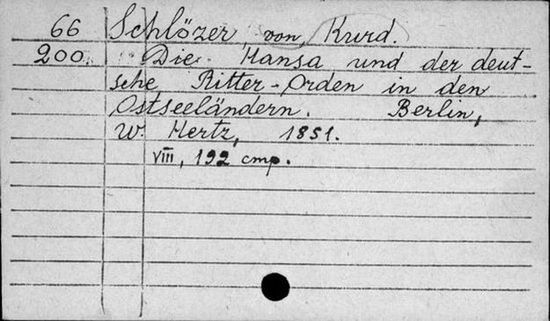 66 Schlözer von, Kurd.
200. Die Hansa und der deut-
sche Ritter-Orden in den
Ostseeländern. Berlin,
W. Hertz, 1851.
VIII, 192 стр.